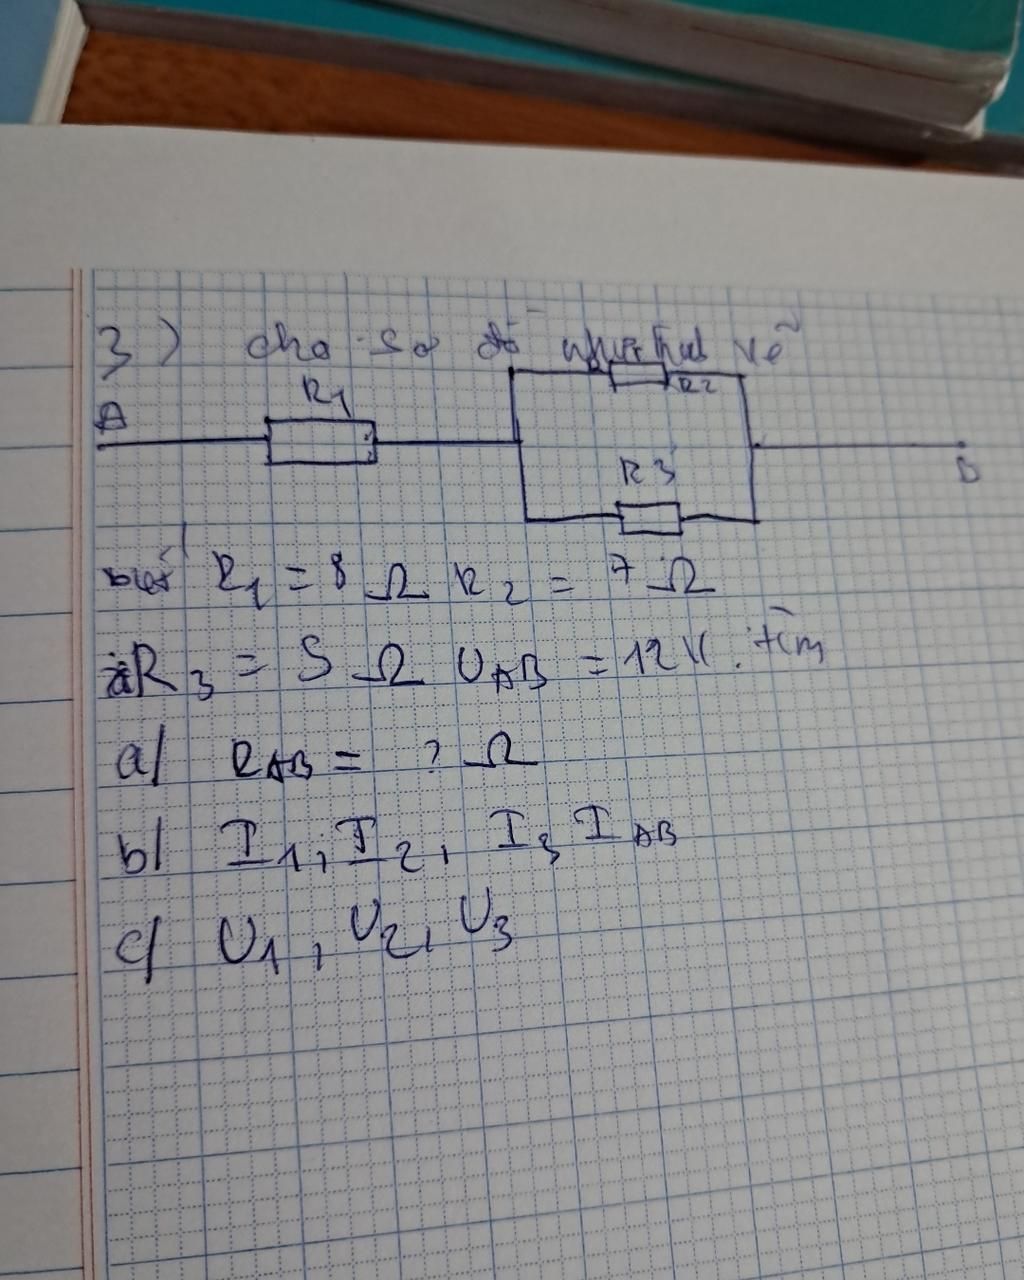 3) cho sơ đồ như hình vẽ
R2
R1
A
R3
B
biết R1 = 8 Ω R2 = 7 Ω
R3 = 5 Ω UAB = 12 V. tìm
a/ RAB = ? Ω
b/ I1, I2, I3 IAB
c/ U1, U2, U3